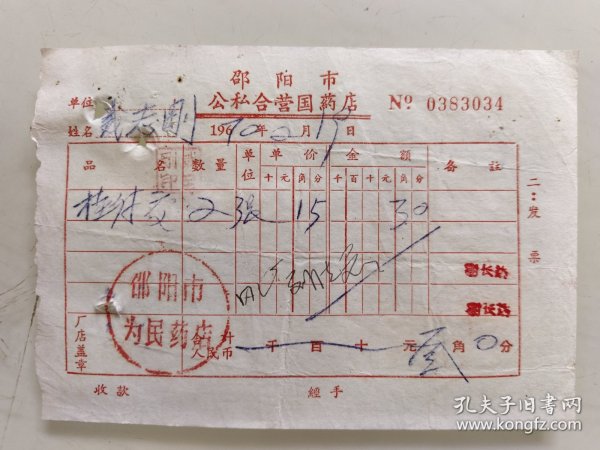 邵阳市
公私合营国药店
№ 0383034
单位
姓名 戴志刚 1970年2月19日
品名 数量 单位 单价 金额 备註
十元角分 千百十元角分
2 张 15 30
邵阳市
为民药店
厂店盖章
合计人民币 千百十元叁角0分
收款 經手
二：发票
孔夫子旧书网
www.kongfz.com